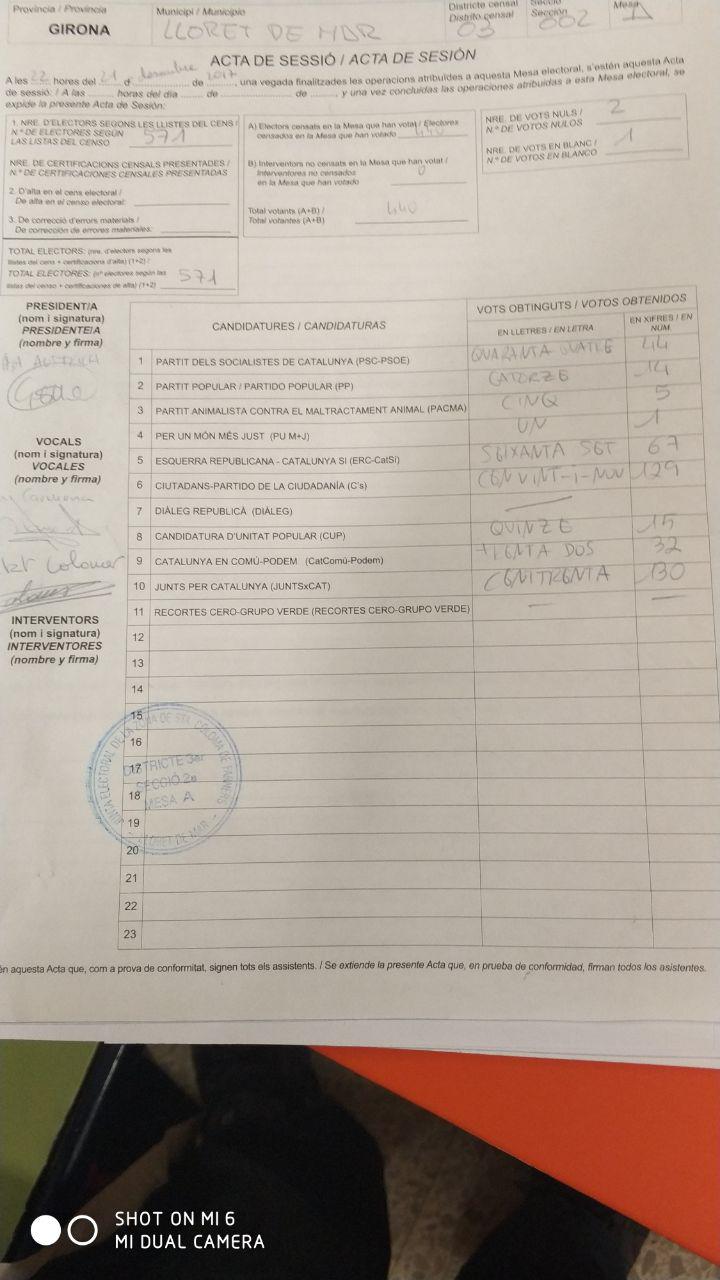 Província / Provincia
GIRONA
Municipi / Municipio
LLORET DE MAR
Districte censal
Distrito censal
03
Secció
Sección
002
Mesa
A
ACTA DE SESSIÓ / ACTA DE SESIÓN
A les 22 hores del 21 d desembre de 2017, una vegada finalitzades les operacions atribuïdes a aquesta Mesa electoral, s'estén aquesta Acta
de sessió: / A las ......... horas del día ......... de ......... de ........., y una vez concluidas las operaciones atribuidas a esta Mesa electoral, se
expide la presente Acta de Sesión:
1. NRE. D'ELECTORS SEGONS LES LLISTES DEL CENS /
N.º DE ELECTORES SEGÚN
LAS LISTAS DEL CENSO 571
NRE. DE CERTIFICACIONS CENSALS PRESENTADES /
N.º DE CERTIFICACIONES CENSALES PRESENTADAS
2. D'alta en el cens electoral /
De alta en el censo electoral:
3. De correcció d'errors materials /
De corrección de errores materiales:
TOTAL ELECTORS: (nre. d'electors segons les
llistes del cens + certificacions d'alta) (1+2) /
TOTAL ELECTORES: (nº electores según las
listas del censo + certificaciones de alta) (1+2) 571
A) Electors censats en la Mesa que han votat / Electores
censados en la Mesa que han votado 440
B) Interventors no censats en la Mesa que han votat /
Interventores no censados
en la Mesa que han votado 0
Total votants (A+B) /
Total votantes (A+B) 440
NRE. DE VOTS NULS /
N.º DE VOTOS NULOS 2
NRE. DE VOTS EN BLANC /
N.º DE VOTOS EN BLANCO 1
PRESIDENT/A
(nom i signatura)
PRESIDENTE/A
(nombre y firma)
VOCALS
(nom i signatura)
VOCALES
(nombre y firma)
Carmona
Colomer
INTERVENTORS
(nom i signatura)
INTERVENTORES
(nombre y firma)
CANDIDATURES / CANDIDATURAS
VOTS OBTINGUTS / VOTOS OBTENIDOS
EN LLETRES / EN LETRA
EN XIFRES / EN NÚM.
1 PARTIT DELS SOCIALISTES DE CATALUNYA (PSC-PSOE) QUARANTA QUATRE 44
2 PARTIT POPULAR / PARTIDO POPULAR (PP) CATORZE 14
3 PARTIT ANIMALISTA CONTRA EL MALTRACTAMENT ANIMAL (PACMA) CINQ 5
4 PER UN MÓN MÉS JUST (PU M+J) UN 1
5 ESQUERRA REPUBLICANA - CATALUNYA SI (ERC-CatSí) SEIXANTA SET 67
6 CIUTADANS-PARTIDO DE LA CIUDADANÍA (C's) CENVINT-I-NOU 129
7 DIÀLEG REPUBLICÀ (DIÀLEG) —
8 CANDIDATURA D'UNITAT POPULAR (CUP) QUINZE 15
9 CATALUNYA EN COMÚ-PODEM (CatComú-Podem) TRENTA DOS 32
10 JUNTS PER CATALUNYA (JUNTSxCAT) CENTTRENTA 130
11 RECORTES CERO-GRUPO VERDE (RECORTES CERO-GRUPO VERDE) — —
12
13
14
15
16
17
18
19
20
21
22
23
JUNTA ELECTORAL DE LA ZONA DE STA. COLOMA DE FARNERS
DISTRICTE 3er
SECCIÓ 2a
MESA A
- LLORET DE MAR -
én aquesta Acta que, com a prova de conformitat, signen tots els assistents. / Se extiende la presente Acta que, en prueba de conformidad, firman todos los asistentes.
SHOT ON MI 6
MI DUAL CAMERA